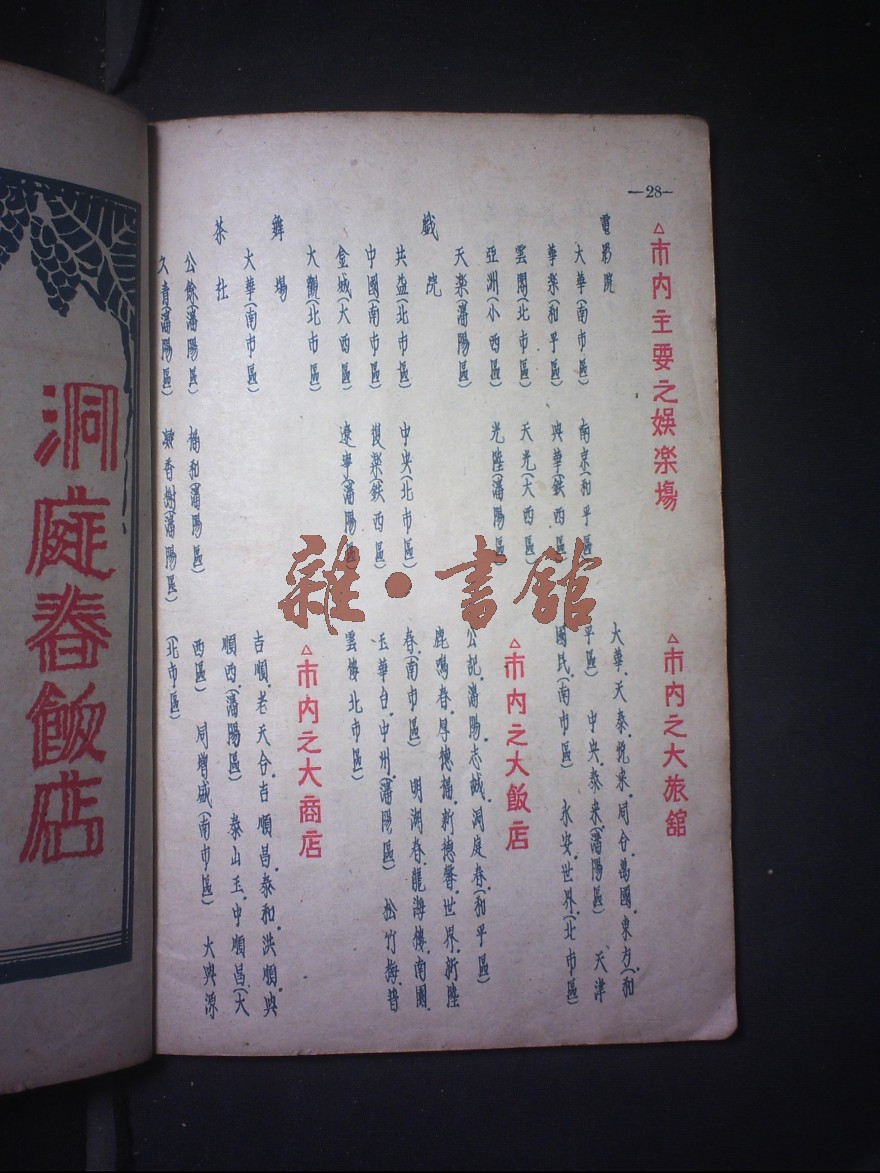 —28—
△市内主要之娛楽場
電影院
大華(南市區) 南京(和平區)
華楽(和平區) 興華(鉄西區)
雲閣(北市區) 天光(大西區)
亞洲(小西區) 光陸(瀋陽區)
天楽(瀋陽區)
戲院
共益(北市區) 中央(北市區)
中國(南市區) 復楽(鉄西區)
金城(大西區) 遼寧(瀋陽區)
大觀(北市區)
舞場
大華(南市區)
茶社
公餘(瀋陽區) 楊和(瀋陽區)
久青(瀋陽區) 凝香榭(瀋陽區)
△市内之大旅舘
大華.天泰.悦来.同合.萬國.東方.(和
平區) 中央.泰来(瀋陽區) 天津
國民.(南市區) 永安.世界.(北市區)
△市内之大飯店
公記.瀋陽.志誠.洞庭春.(和平區)
鹿鳴春.厚德福.新德馨.世界.新陸
春.(南市區) 明湖春.龍海樓.南園.
玉華台.中州.(瀋陽區) 松竹梅.普
雲樓 北市區)
△市内之大商店
吉順.老天合.吉順昌.泰和.洪順.興
順西.(瀋陽區) 泰山玉.中順昌.(大
西區) 同增盛(南市區) 大興源
(北市區)
洞庭春飯店
雜·書舘